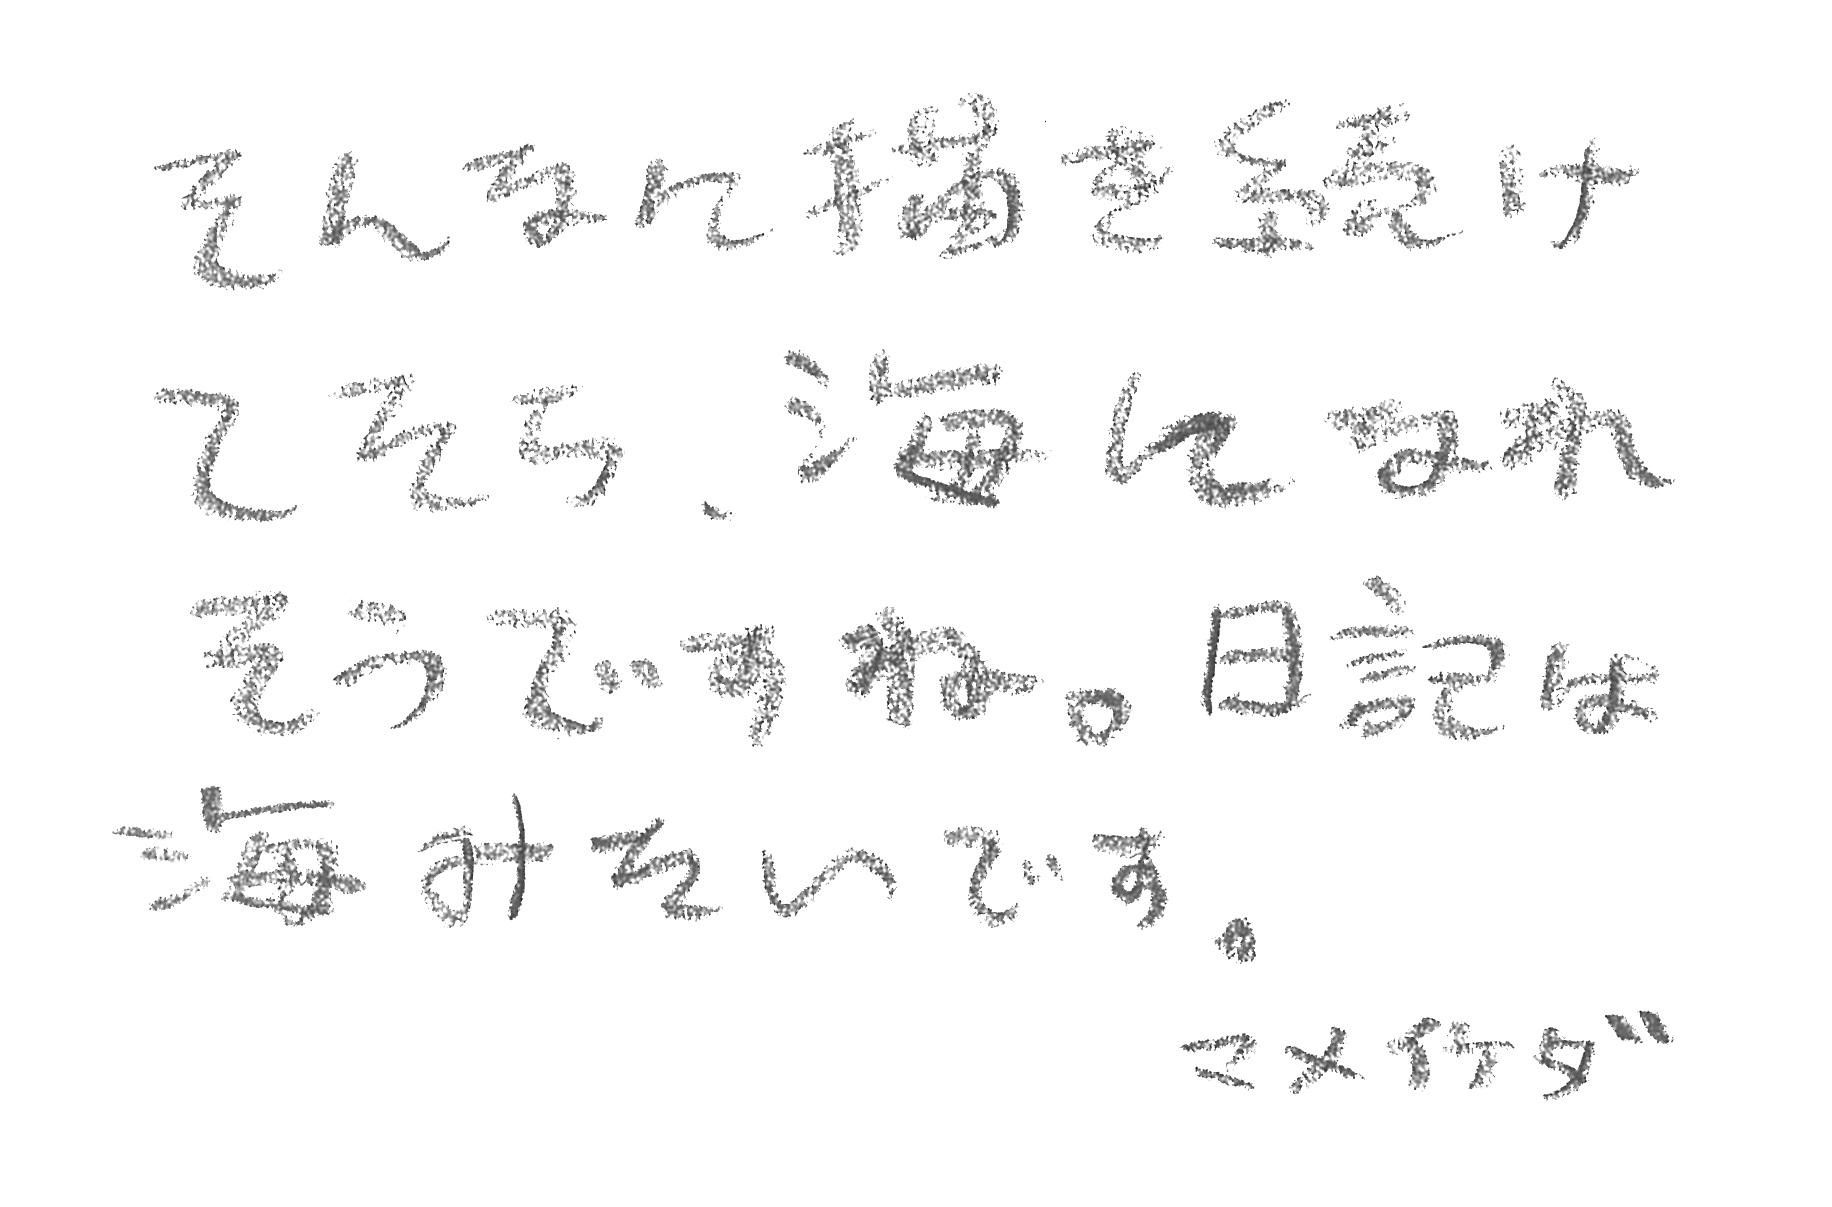 そんなに描き続け
てたら、海になれ
そうですね。日記は
海みたいです。
マメイケダ